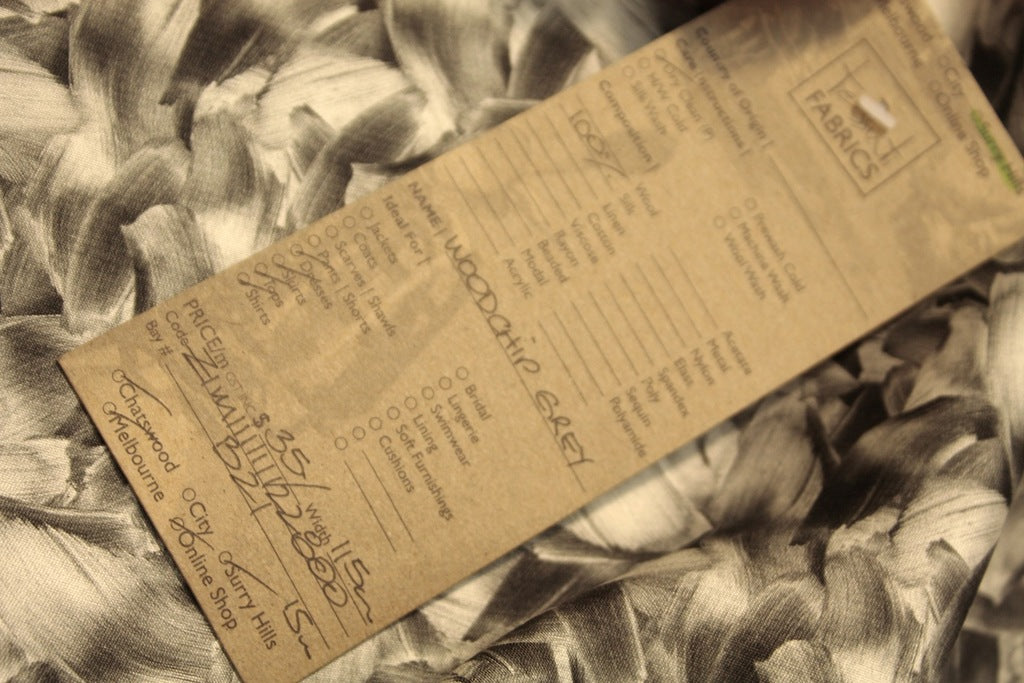 FABRICS
City
Online Shop
Country of Origin |
Care | Instructions |
Dry Clean (P)
H/W Cold
Silk Wash
Prewash Cold
Machine Wash
Wool Wash
Composition |
100% Wool
Silk
Linen
Cotton
Viscose
Rayon
Beaded
Modal
Acrylic
Acetate
Metal
Nylon
Elas
Spandex
Poly
Sequin
Polyamide
NAME | WOODCHIP GREY
Ideal For |
Jackets
Coats
Scarves | Shawls
Pants | Shorts
Dresses
Skirts
Tops
Shirts
Bridal
Lingerie
Swimwear
Lining
Soft Furnishings
Cushions
PRICE/m $35/ Width 115
Code
Bay # B21
Chatswood
City
Surry Hills
Melbourne
Online Shop